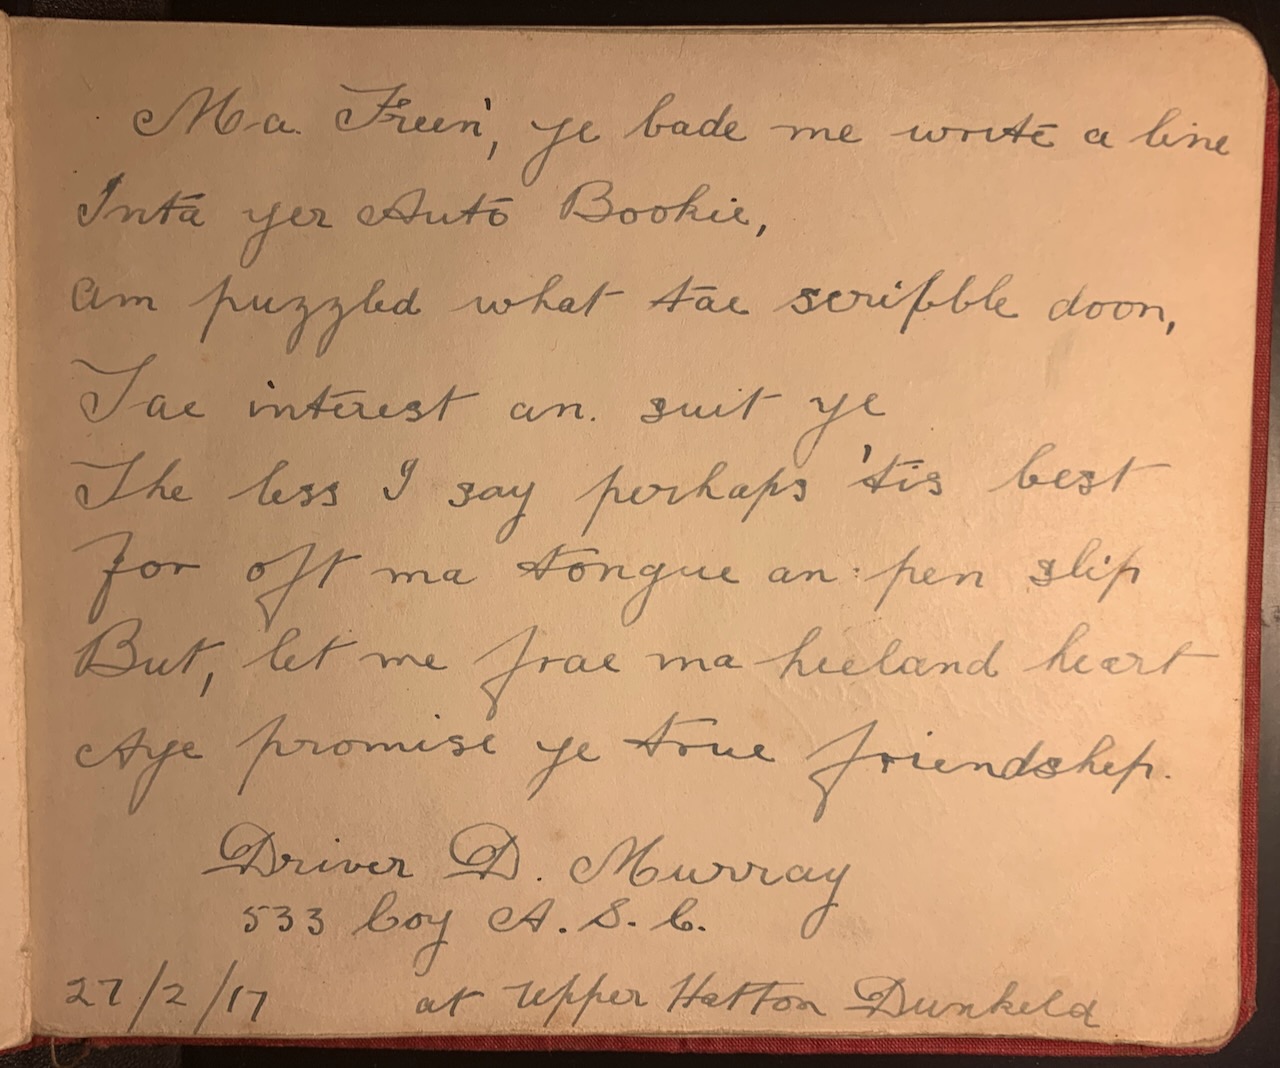 Ma. Freen', ye bade me write a line
Inta yer Auto Bookie,
am puzzled what tae scribble doon,
Tae interest an. suit ye
The less I say perhaps 'tis best
For oft ma tongue an: pen slip
But, let me frae ma heeland heart
Aye promise ye true friendship.
Driver D. Murray
533 Coy A. S. C.
27/2/17 at Upper Hatton Dunkeld